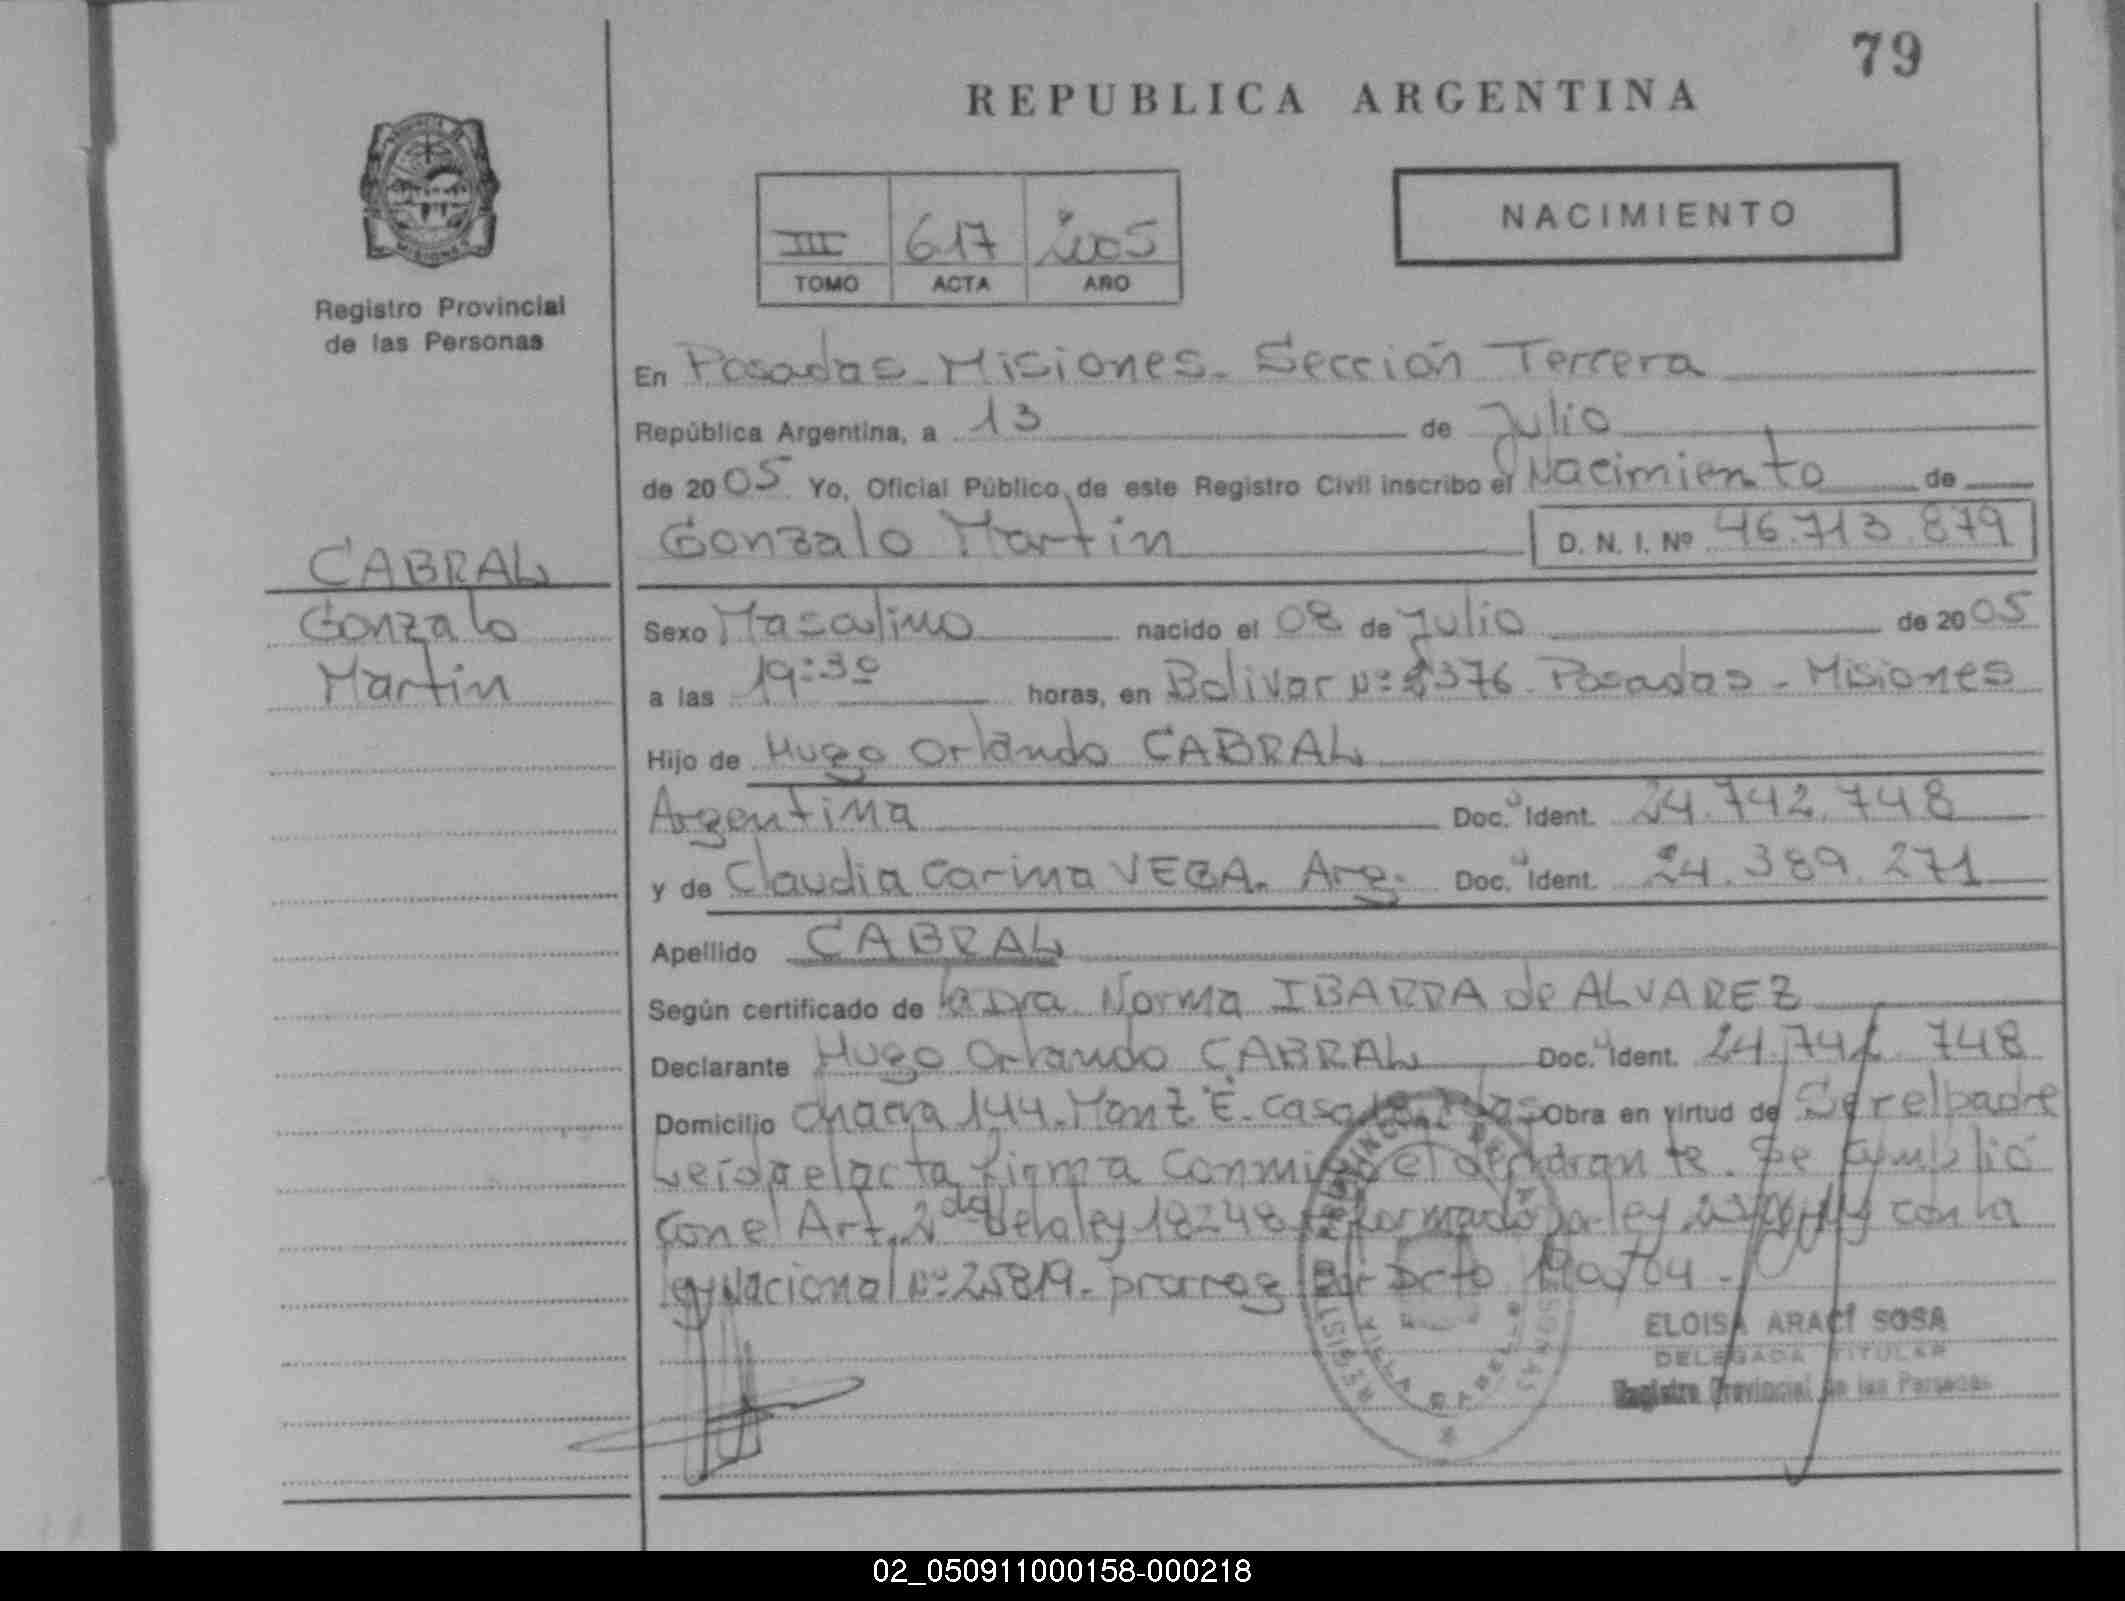 79
REPUBLICA ARGENTINA
NACIMIENTO
III 617 2005
TOMO ACTA AÑO
PROVINCIA DE MISIONES
Registro Provincial
de las Personas
En Posadas - Misiones - Sección Tercera
República Argentina, a 13 de Julio
de 2005 Yo, Oficial Público de este Registro Civil inscribo el Nacimiento de
Gonzalo Martin D. N. I. Nº 46.713.879
CABRAL
Gonzalo
Martin
Sexo Masculino nacido el 08 de Julio de 2005
a las 19:30 horas, en Bolivar Nº 2376 Posadas - Misiones
Hijo de Hugo Orlando CABRAL
Argentina Doc. Ident. 24.742.748
y de Claudia Carina VEGA. Arg. Doc. Ident. 24.389.271
Apellido CABRAL
Según certificado de la Dra Norma IBARRA de ALVAREZ
Declarante Hugo Orlando CABRAL Doc. Ident. 24.742.748
Domicilio Chacra 144. Manz. E. Casa Obra en virtud de Ser el padre
Leida el acta firma conmigo el declarante. Se cumplió
con el Art. 2da de la ley 18248 reformado por ley y con la
ley Nacional Nº 25819. prorrog por Dcto
REGISTRO PROVINCIAL DE LAS PERSONAS
VILLA
ELOISA ARACÍ SOSA
DELEGADA TITULAR
Registro Provincial de las Personas
02_050911000158-000218